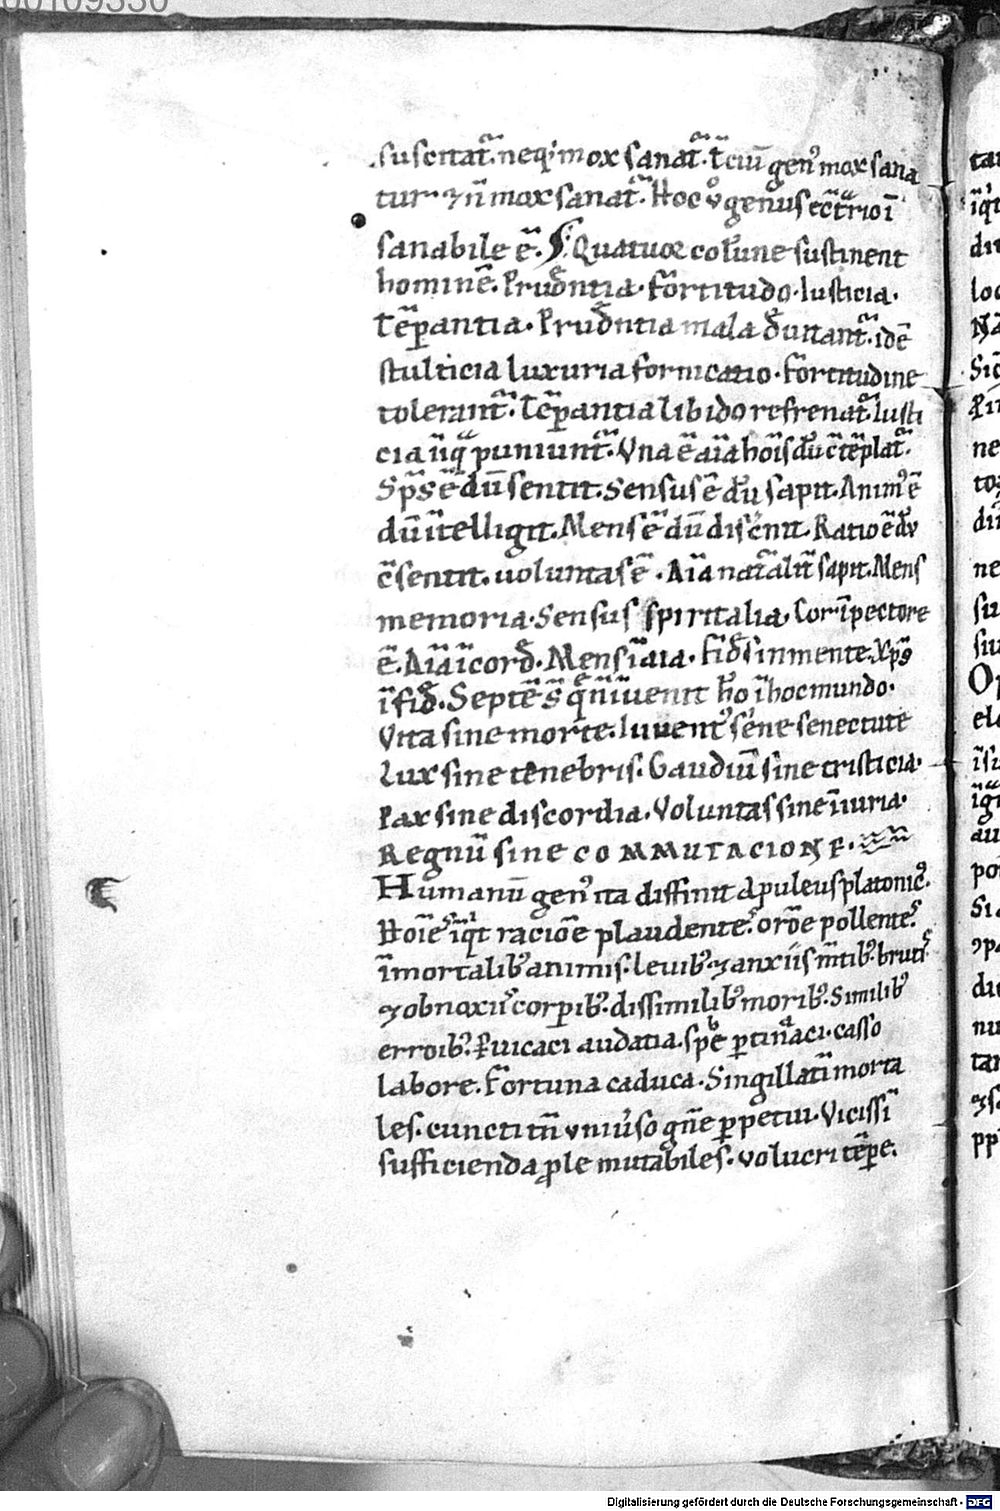 00109330
suscitat᷑. neq; mox sanat᷑. t̄ciū genꝰ mox sana
tur ⁊ n̄ mox sanat᷑. Hoc ů genus
sanabile ē. Quatuor colūne sustinent
hominē. Prudn̄tia. Fortitudo. Iusticia.
Tēꝑantia. Prudn̄tia mala idē
stulticia luxuria fornicatio. Fortitudine
tolerant᷑. Tēꝑantia libido refrenat᷑. Iusti
cia puniunt᷑. Vna ē aīa hoīs
Sp̄s ē dū sentit. Sensus ē dū sapit. Animꝰ ē
dū ītelligit. Mens ē dū discn̄it. Ratio ē dū
c̄sentit. uoluntas ē. Aīa sapit. Mens
memoria. Sensus spiritalia. Cor ī pectore
ē. Aīa ī cord̄. Mens ī aīa. Fid̄s in mente. Xp̄s
ī fid̄. Septē s̄ q̄ n̄ īuenit hō ī hoc mundo.
Vita sine morte. Iuuentꝰ sine senectute
Lux sine tenebris. Gaudiū sine tristicia.
Pax sine discordia. Voluntas sine īiuria.
Regnū sine COMMUTACIONE.
Humanū genꝰ ita diffinit Apuleus platonicꝰ.
Hoīes īqt racioē plaudentes. orōe pollentes.
īmortalibꝰ animis. leuibꝰ ⁊ anxiis m̄tibꝰ. brutis
⁊ obnoxiis corꝑibꝰ. dissimilibꝰ moribꝰ. Similibꝰ
erroibꝰ. ꝑuicaci audatia. spe ꝑtinaci. casso
labore. Fortuna caduca. Singillatī morta
les. cuncti tn̄ uniūso gn̄e ꝑpetui. Vicissī
sufficienda ꝓle mutabiles. uolucri tēꝑe.
Digitalisierung gefördert durch die Deutsche Forschungsgemeinschaft - DFG